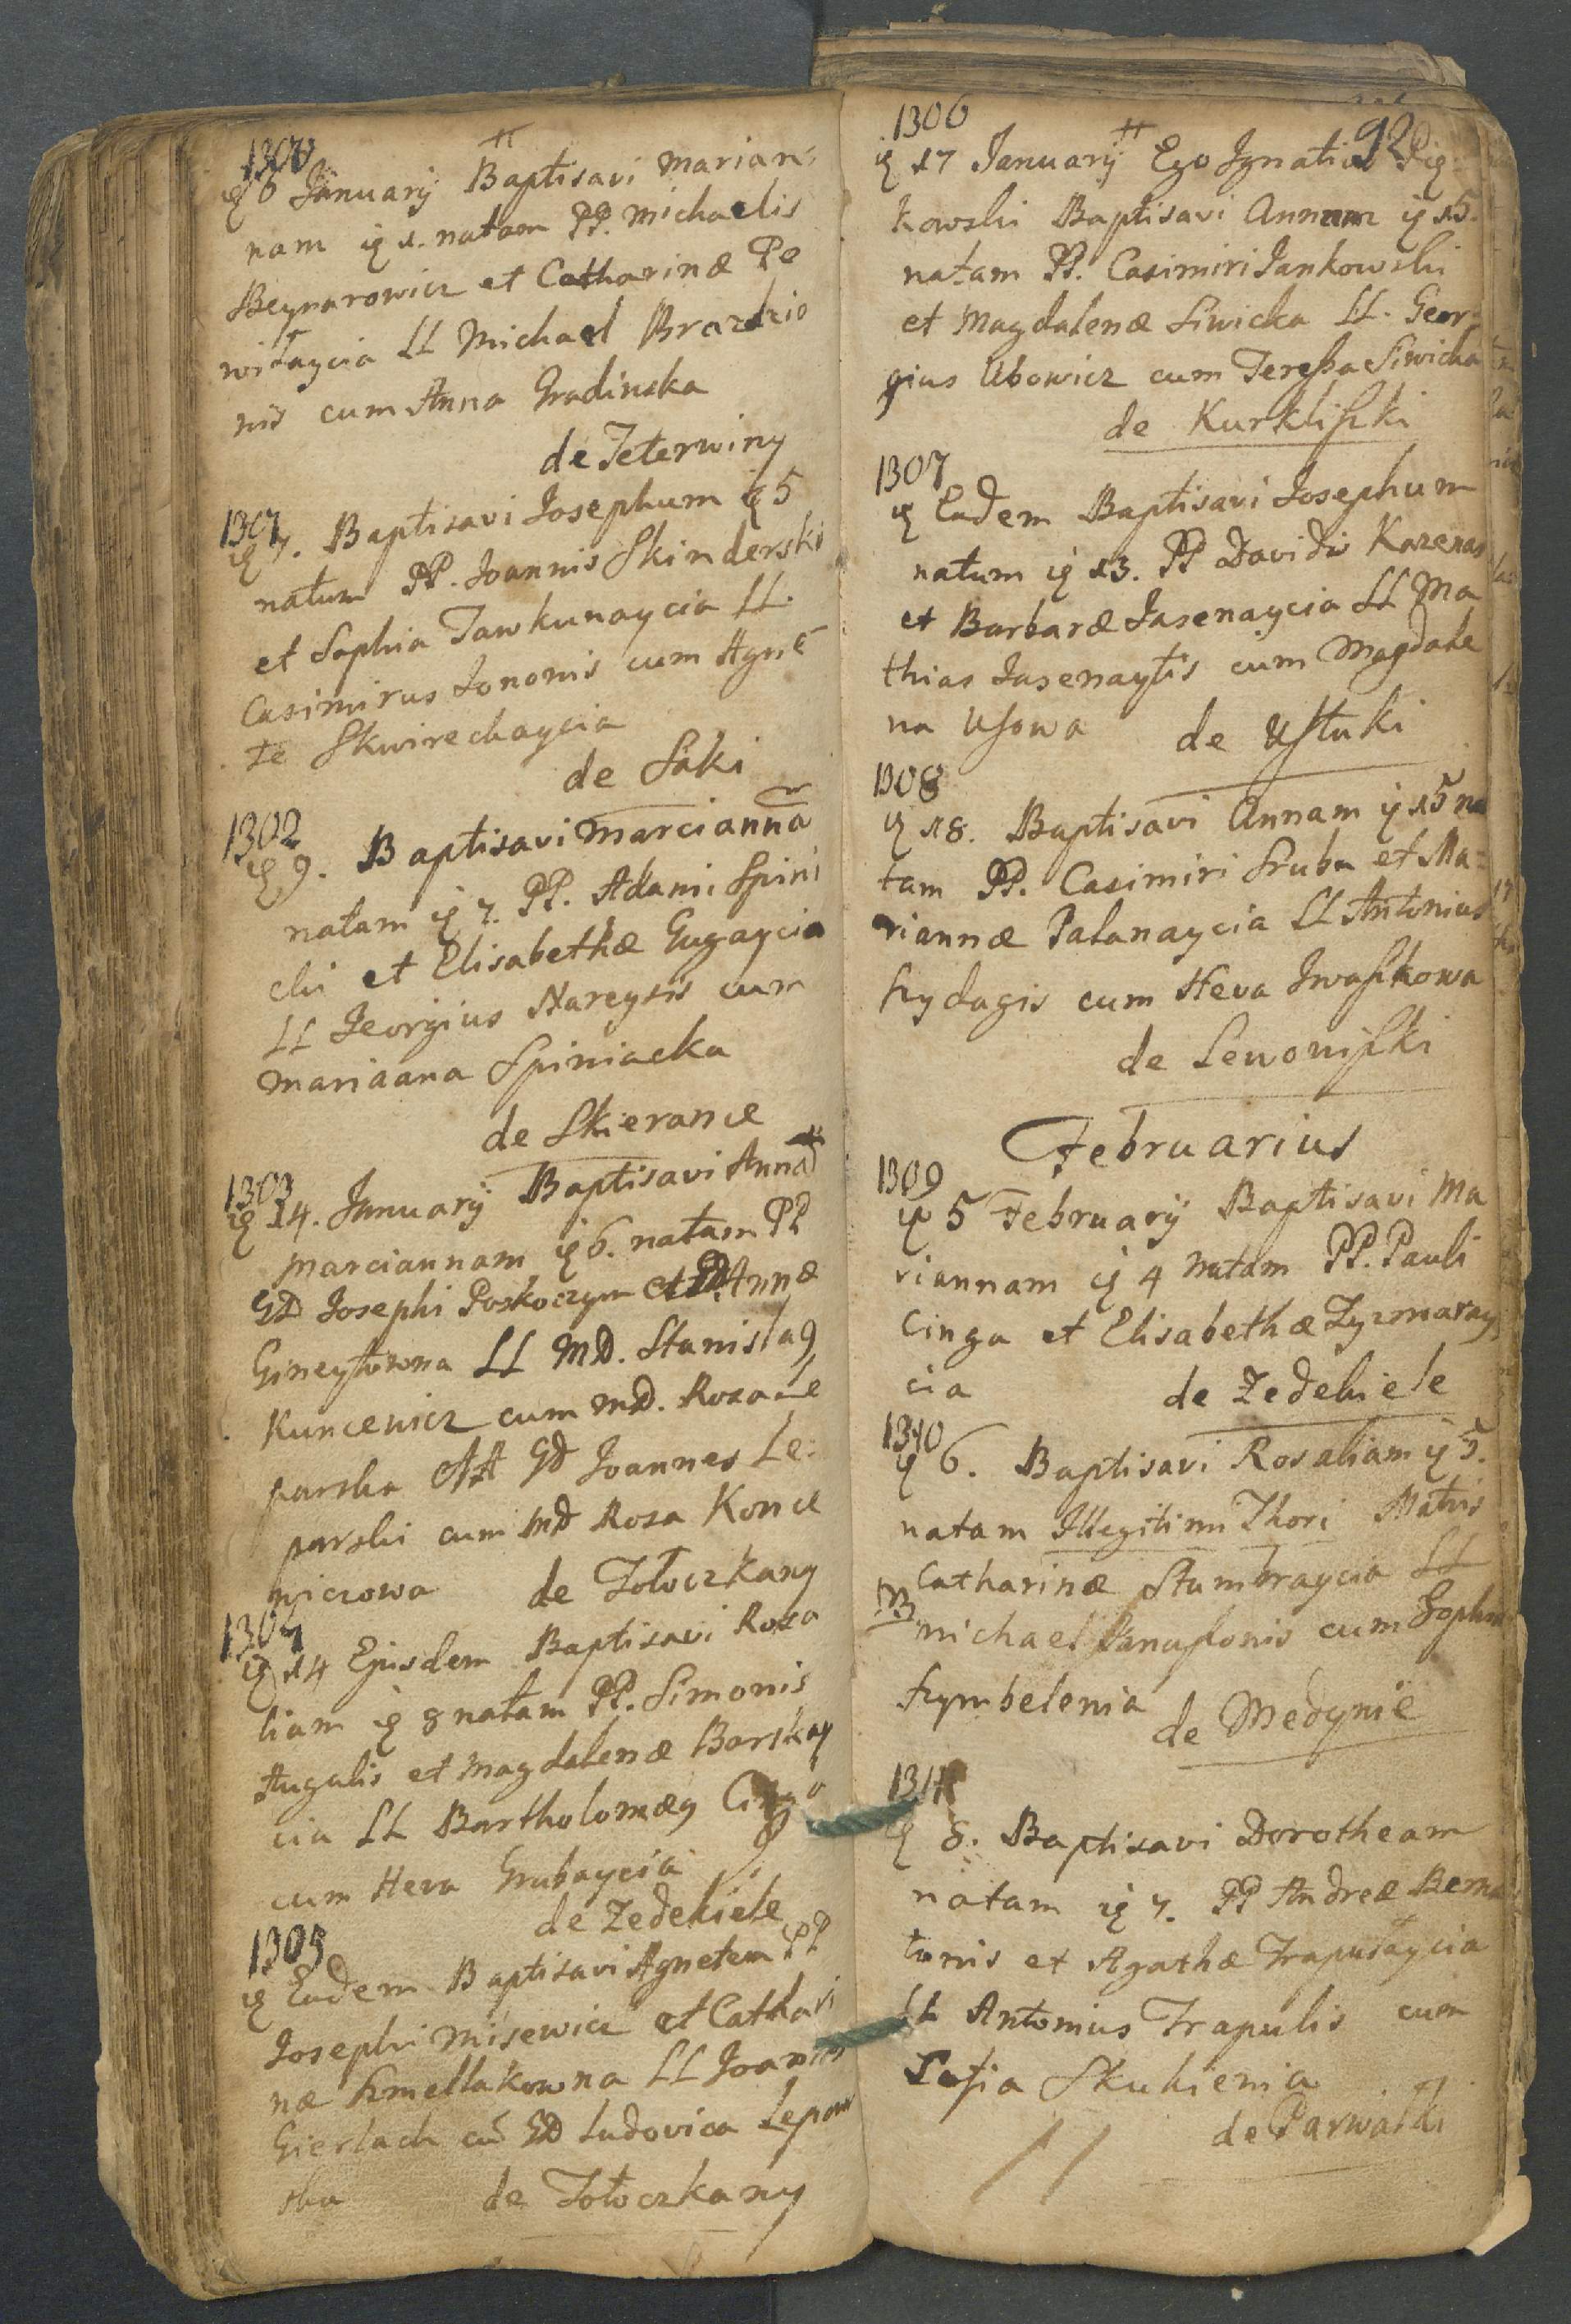 1300
6 January Baptisavi Marian:
nam 1. natam PP. Michaelis
Beynarowicz et Catharinæ Pe
witaycia LL Michael Brazdzio
nis cum Anna Gradinska
de Teterwiny
1301
7. Baptisavi Josephum 5
natum PP. Joannis Skinderski
et Sophia Tawkunaycia LL.
Casimirus Jononis cum Agne
te Skwirechaycia
de Saki
1302
9. Baptisavi Marcianna
natam 7. PP. Adami Spini
cki et Elisabethæ Gugaycia
LL Jeorgius Nareysis cum
Mariaana Spiniacka
de Skierance
1303
14. January Baptisavi Anna
Marciannam 6. natam PP
GD Josephi Poskoczym et Annæ
Gineytowna LL MD. Stanisla9
Kuncewicz cum MD. Roza Le
parska AA GD Joannes Le:
parski cum MD Roza Konce
wiczowa de Tołoczkany
1304
14 Ejusdem Baptisavi Roza
liam 8 natam PP. Simonis
Augulis et Magdalenæ Barskay
cia LL Bartholomæ9 Cinga
cum Heva Grubaycia
de Zedekiele
1305
Eadem Baptisavi Agnetem PP
Josephi Misewicz et Cathari
næ Szmellakowna LL Joannes
Gierlach cu GD Ludovica Lepar
ska de Tołoczkany
1306
92
17 January Ego Ignatius Pig
kowski Baptisavi Annam 15.
natam PP. Casimiri Jankowski
et Magdalenæ Siwicka LL. Geor
gius Ubowicz cum Teressa Siwicka
de Kurkliszki
1307
Eadem Baptisavi Josephum
natum 13. PP Davidis Kazenas
et Barbaræ Jasenaycia LL Ma
thias Jasenaytis cum Magdale
na Usowa de Ustuki
1308
18. Baptisavi Annam 15 na
tam PP. Casimiri Sruba et Ma:
riannæ Palanaycia LL Antonius
Szydagis cum Heva Iwaszkowa
de Lewoniszki
Februarius
1309
5 February Baptisavi Ma
riannam 4 natam PP. Pauli
Cinga et Elisabethæ Zyzmaray
cia de Zedekiele
1310
6. Baptisavi Rosaliam 5.
natam Illegitimi Thori Matris
Catharinæ Stumbraycia LL
Michael cum Sophia
Szymbelenia de Medynie
1311
8. Baptisavi Dorotheam
natam 7. PP Andreæ Berna
tonis et Agathæ Trapulaycia
LL Antonius Trapulis cum
Sofia Skukienia
de Parwałki